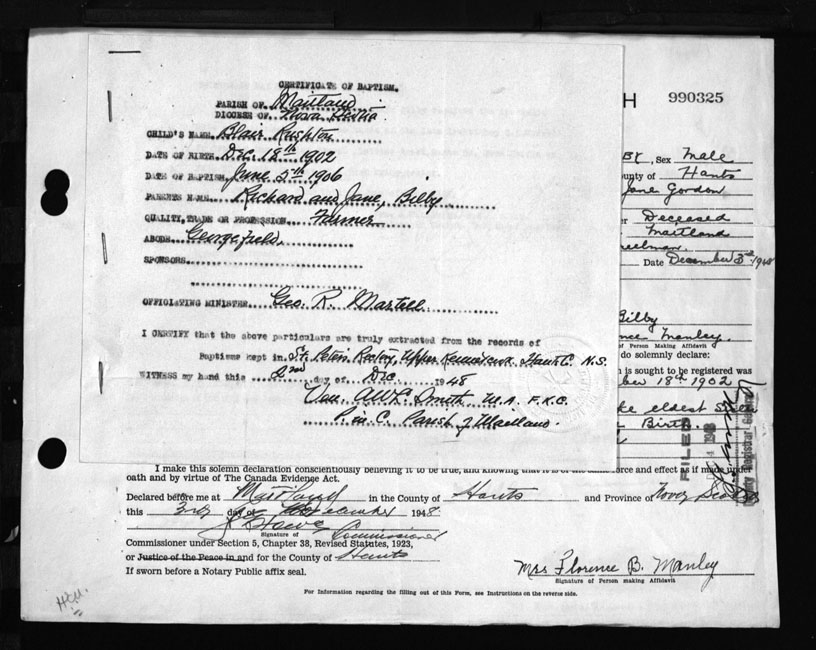 CERTIFICATE OF BAPTISM.
PARISH OF Maitland
DIOCESE OF Nova Scotia
CHILD'S NAME Blair Rushton
DATE OF BIRTH Dec. 18th 1902
DATE OF BAPTISM June 5th 1906
PARENTS NAME Richard and Jane Bilby
QUALITY, TRADE OR PROFESSION Farmer
ABODE Georgefield
SPONSORS
OFFICIATING MINISTER Geo. R. Martell
I CERTIFY that the above particulars are truly extracted from the records of
Baptisms kept in St. Peters Rectory, Upper Kennetcook Hants C. N.S.
WITNESS my hand this 2nd day of Dec. 1948
Ven. AWL Smith M.A. F.K.C.
P. in C. Parish of Maitland.
H 990325
BY, Sex Male
unty of Hants
Jane Gordon
er Deceased
Maitland
reelman.
Date December 3rd 1948
Bilby
nce Manley.
of Person Making Affidavit
do solemnly declare:
n is sought to be registered was
ber 18th 1902
he eldest Sister
Birth.
FILED
I make this solemn declaration conscientiously believing it to be true, and knowing that it is of the same force and effect as if made under
oath and by virtue of The Canada Evidence Act.
Declared before me at in the County of Hants and Province of Nova Scotia
this 3rd day of December 1948.
Signature of Commissioner
Commissioner under Section 5, Chapter 38, Revised Statutes, 1923,
or Justice of the Peace in and for the County of Hants
If sworn before a Notary Public affix seal.
Mrs Florence B. Manley
Signature of Person making Affidavit
For Information regarding the filling out of this Form, see Instructions on the reverse side.